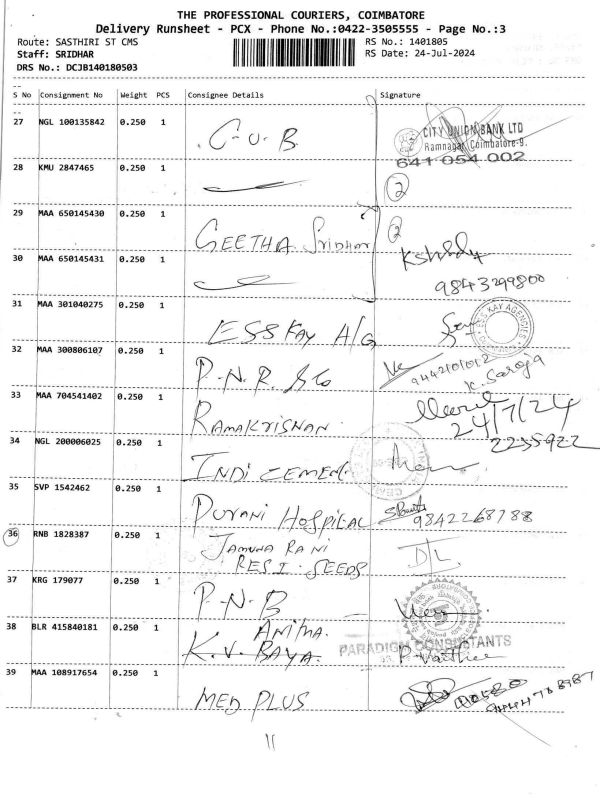 THE PROFESSIONAL COURIERS, COIMBATORE
Delivery Runsheet - PCX - Phone No.:0422-3505555 - Page No.:3
Route: SASTHIRI ST CMS
RS No.: 1401805
Staff: SRIDHAR
RS Date: 24-Jul-2024
DRS No.: DCJB140180503
--
S No Consignment No Weight PCS Consignee Details Signature
--
27 NGL 100135842 0.250 1 C.U.B
CITY UNION BANK LTD
Ramnagar, Coimbatore-9.
641 054 002
28 KMU 2847465 0.250 1 2
29 MAA 650145430 0.250 1 GEETHA Sridhar 2
30 MAA 650145431 0.250 1
9843299800
31 MAA 301040275 0.250 1 ESSKAY A/G
ESS KAY AGENCIES
32 MAA 300806107 0.250 1 P.N.R. &co
9442101012
K. Saroja
33 MAA 704541402 0.250 1 RAMAKRISHNAN
24/7/24
2235922
34 NGL 200006025 0.250 1 INDI CEMENT
35 SVP 1542462 0.250 1 PURANI HOSPITAL
9842268788
36 RNB 1828387 0.250 1 JAMUNA RANI
RESI. SEEDS
D/L
37 KRG 179077 0.250 1 P.N.B
38 BLR 415840181 0.250 1 ANITHA.
K.V. BAYA.
PARADIGM CONSULTANTS
39 MAA 108917654 0.250 1 MED PLUS
11